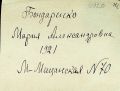 Бондаренко
Мария Александровна
1921
М-Мещанская №70